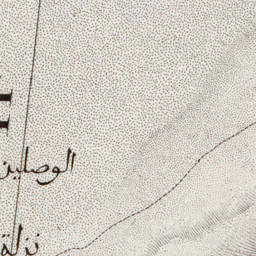 الوصلين
نزلة